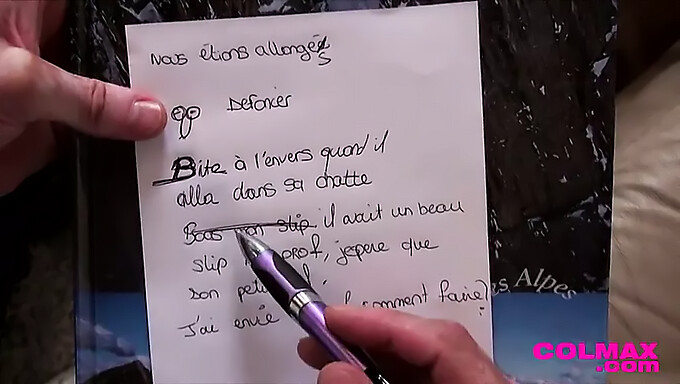 Nous étions allongés
Defoncer
Bite à l'envers quand il
alla dans sa chatte
Bous mon slip il avait un beau
slip prof, jepere que
son petit
J'ai envie comment faire?
es Alpes
COLMAX
.com